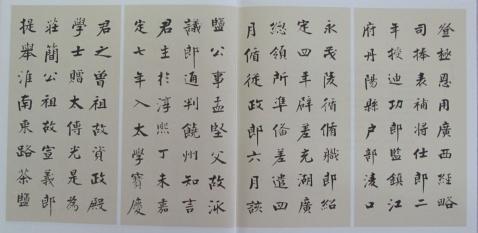 登極恩用廣西經略
司捧表補將仕郎二
年授迪功郎監鎮江
府丹陽縣戶部淩口
永茂陵循脩職郎紹
定四年辟差充湖廣
總領所準備差遣四
月循從政郎六月該
鹽公事孟堅父故泳
議郎通判饒州知言
君生於淳熙丁未嘉
定七年入太學寶慶
君之曾祖故資政殿
學士贈太傅光是為
莊簡公祖故宣義郎
提舉淮南東路茶鹽